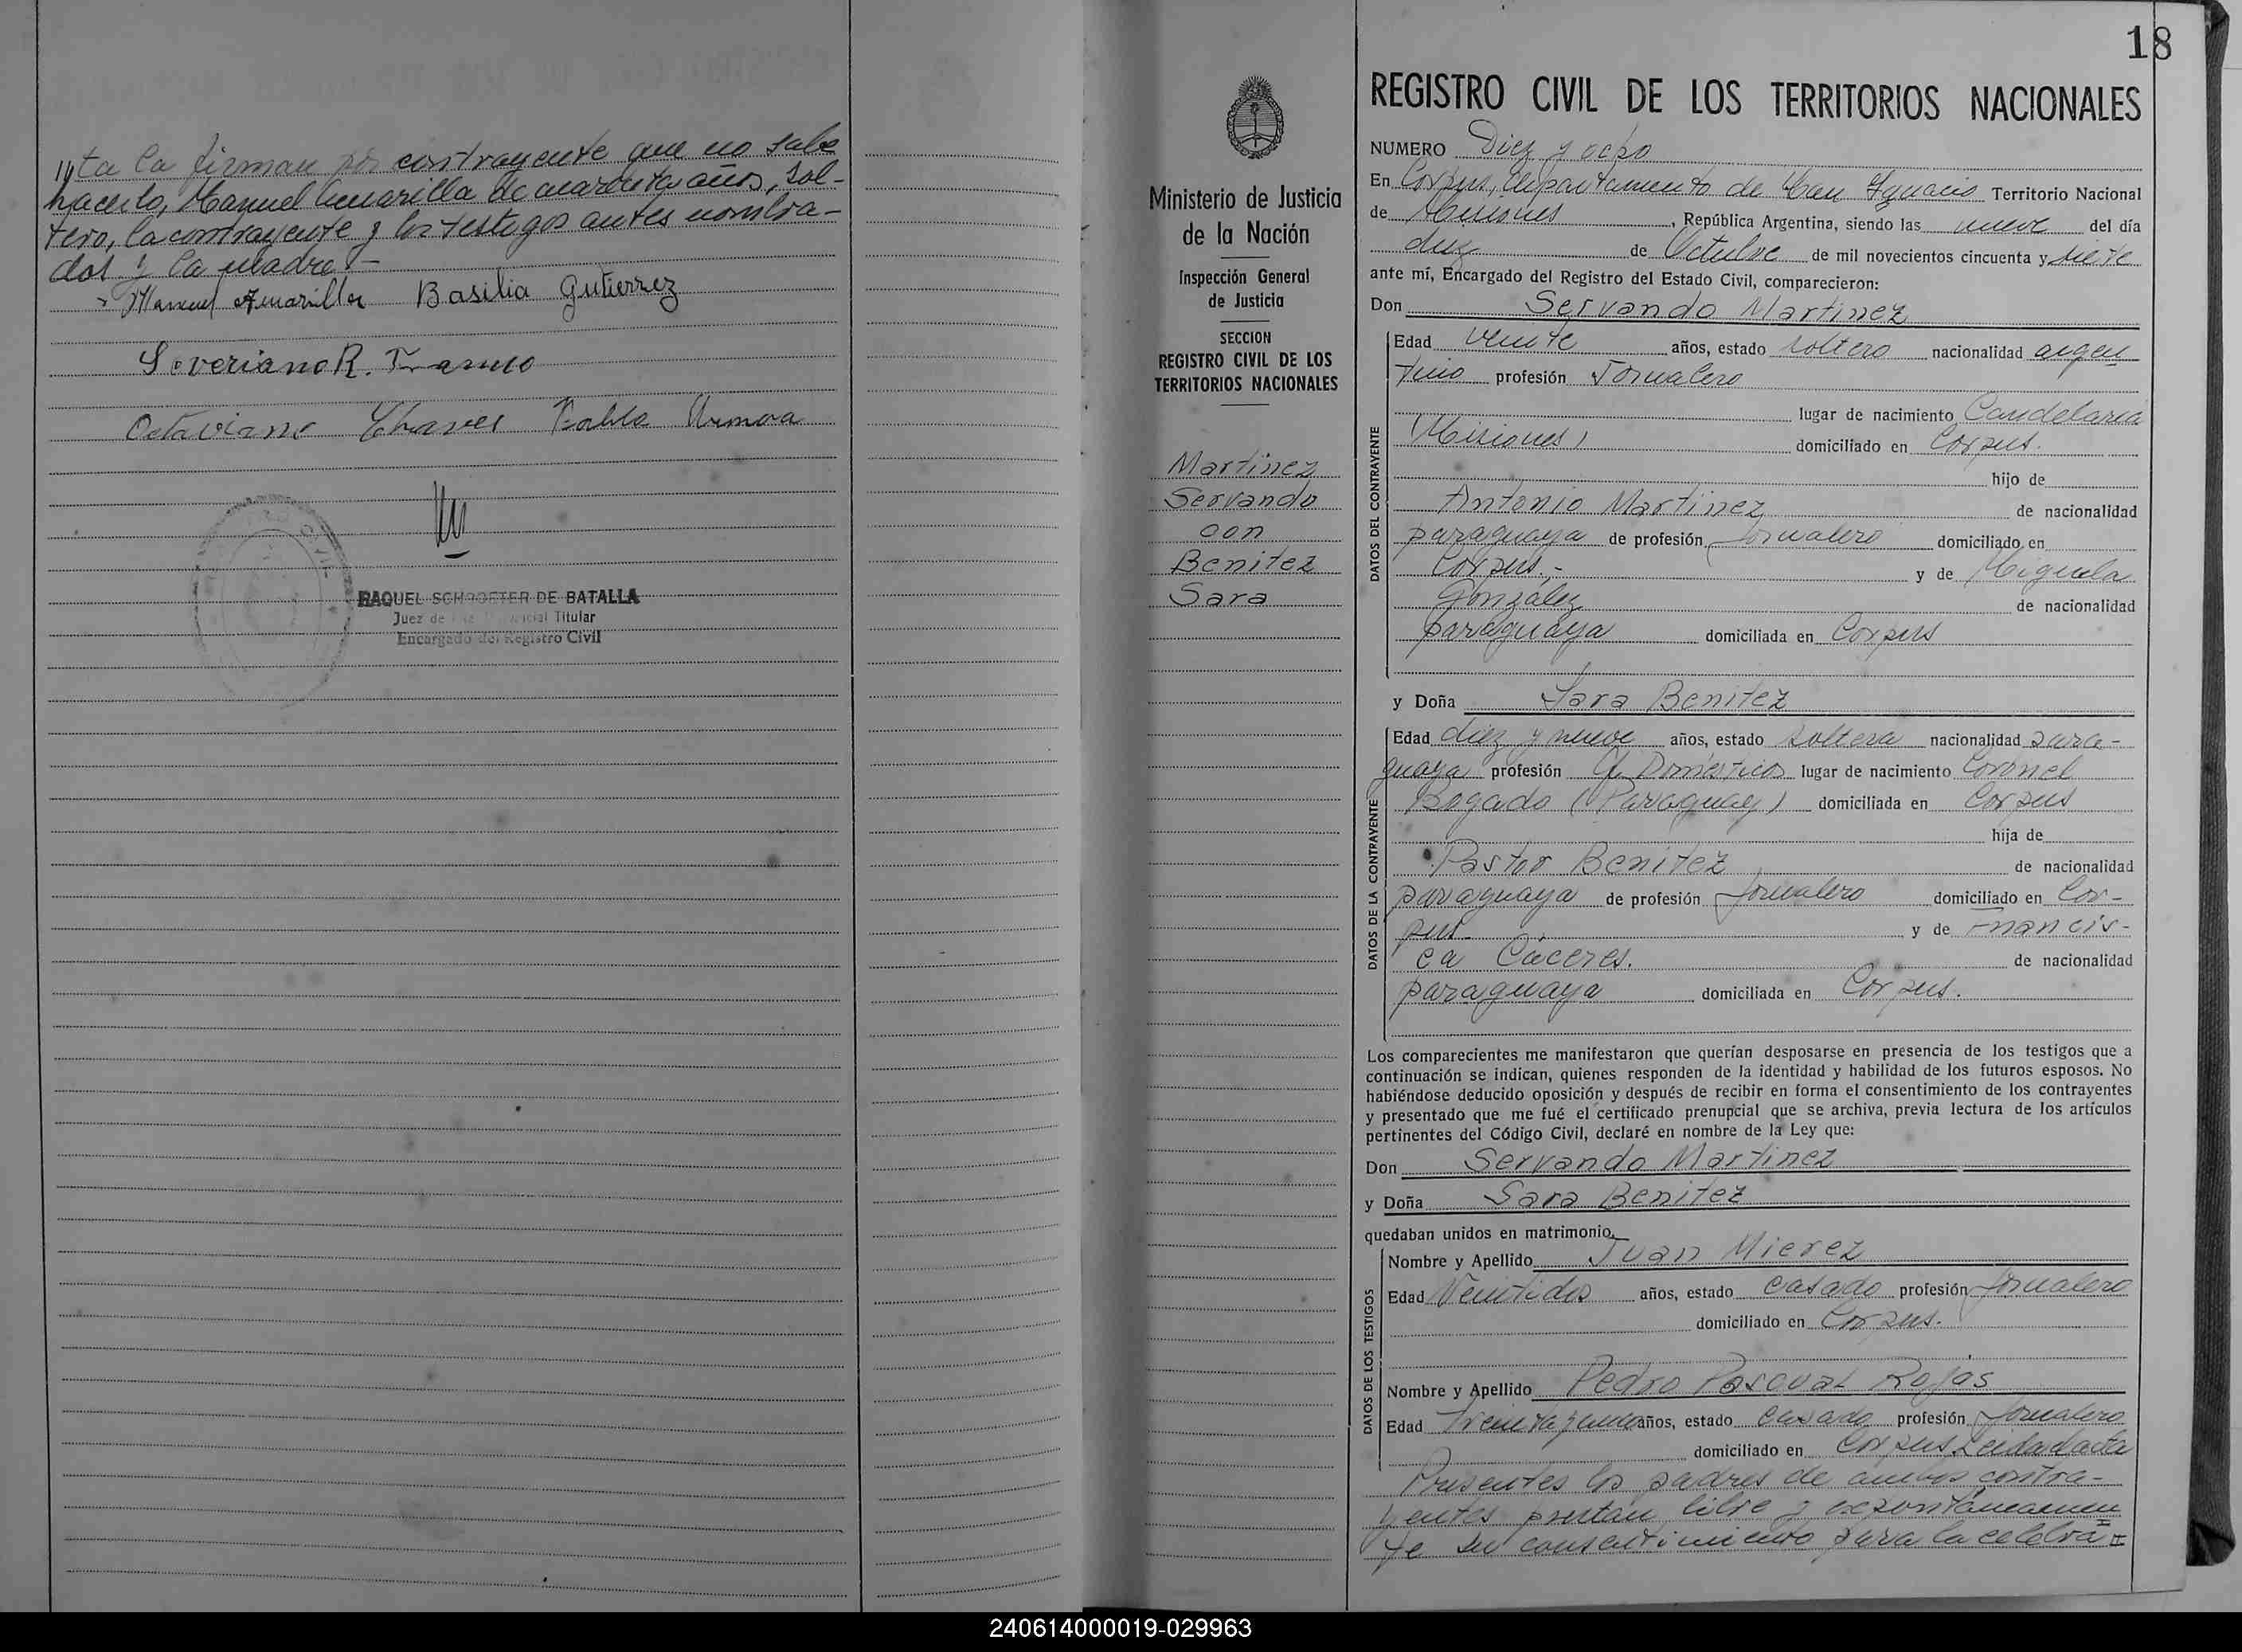 //ta la firman por contrayente que no sabe
hacerlo, Manuel Amarilla de cuarenta años, sol-
tero, la contrayente y los testigos antes nombra-
dos y la madre.-
Manuel Amarilla Basilia Gutierrez
Severiano R.
Octaviano Chaves Pablo
RAQUEL SCHROETER DE BATALLA
Juez de Titular
Encargado del Registro Civil
18
Ministerio de Justicia
de la Nación
Inspección General
de Justicia
SECCION
REGISTRO CIVIL DE LOS
TERRITORIOS NACIONALES
Martinez
Servando
con
Benitez
Sara
REGISTRO CIVIL DE LOS TERRITORIOS NACIONALES
NUMERO Diez y ocho
En Corpus, departamento de San Ignacio Territorio Nacional
de Misiones, República Argentina, siendo las nueve del día
diez de Octubre de mil novecientos cincuenta y siete
ante mí, Encargado del Registro del Estado Civil, comparecieron:
Don Servando Martinez
DATOS DEL CONTRAYENTE
Edad veinte años, estado soltero nacionalidad argen
tino profesión Jornalero
lugar de nacimiento Candelaria
(Misiones) domiciliado en Corpus.
hijo de
Antonio Martinez de nacionalidad
paraguaya de profesión jornalero domiciliado en
Corpus.- y de Miguela
González de nacionalidad
paraguaya domiciliada en Corpus
y Doña Sara Benitez
DATOS DE LA CONTRAYENTE
Edad diez y nueve años, estado soltera nacionalidad para-
guaya profesión Q. Domésticos lugar de nacimiento Coronel
Bogado (Paraguay) domiciliada en Corpus
hija de
Pastor Benitez de nacionalidad
paraguaya de profesión jornalero domiciliado en Cor-
pus- y de Francis-
ca Cáceres. de nacionalidad
paraguaya domiciliada en Corpus.
Los comparecientes me manifestaron que querían desposarse en presencia de los testigos que a
continuación se indican, quienes responden de la identidad y habilidad de los futuros esposos. No
habiéndose deducido oposición y después de recibir en forma el consentimiento de los contrayentes
y presentado que me fué el certificado prenupcial que se archiva, previa lectura de los artículos
pertinentes del Código Civil, declaré en nombre de la Ley que:
Don Servando Martinez
y Doña Sara Benitez
quedaban unidos en matrimonio.
DATOS DE LOS TESTIGOS
Nombre y Apellido Juan Mierez
Edad Veintidos años, estado casado profesión jornalero
domiciliado en Corpus.
Nombre y Apellido Pedro Pascual Rojas
Edad años, estado casado profesión jornalero
domiciliado en Corpus Leida el acta
Presentes los padres de ambos contra-
yentes prestan libre y expontáneamen
te su consentimiento para la celebra
240614000019-029963